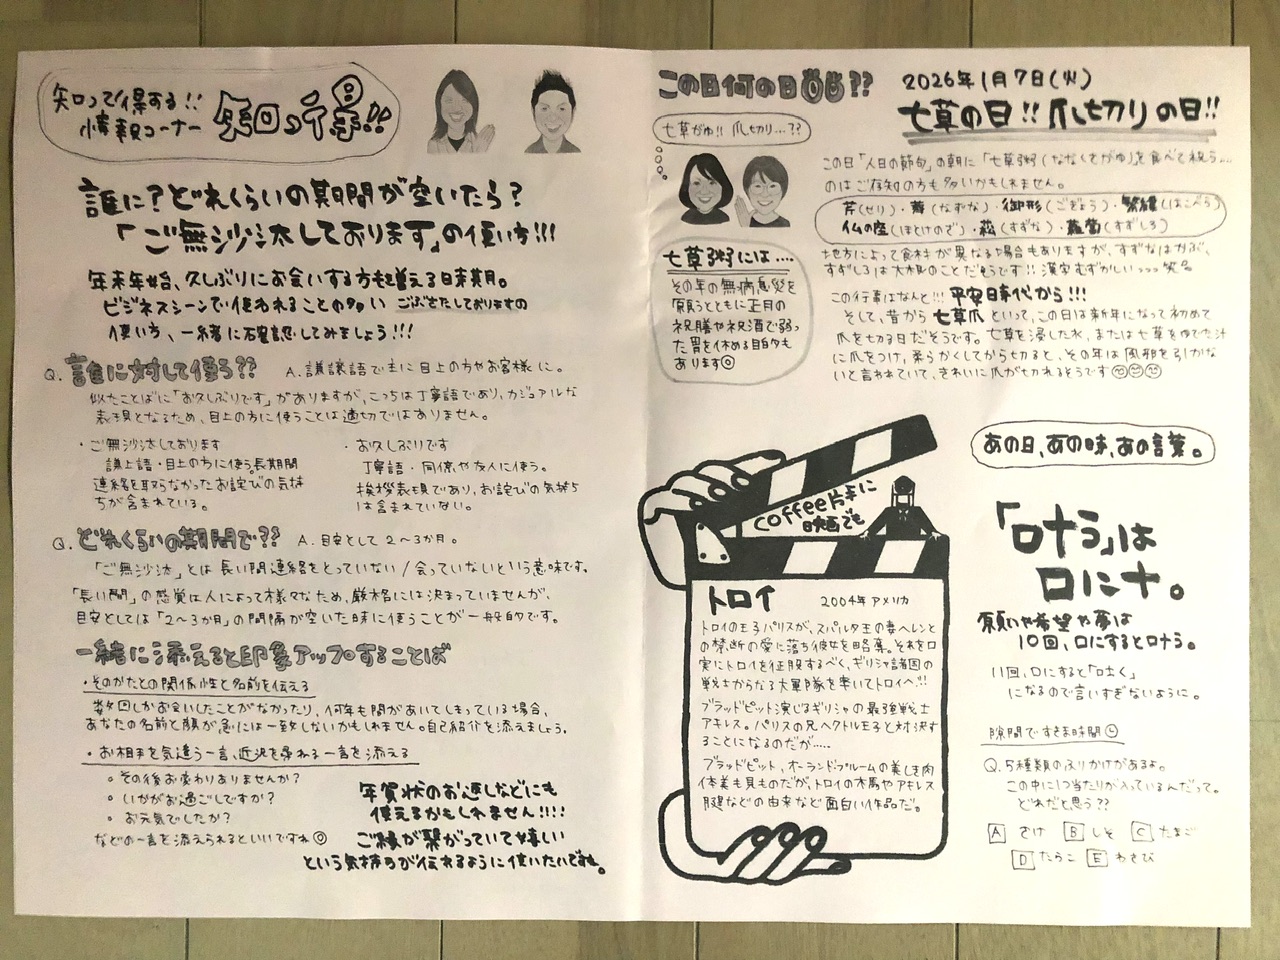 知って得する!!
情報コーナー
知っ得!!
誰に?どれくらいの期間が空いたら?
「ご無沙汰しております」の使い方!!!
年末年始、久しぶりにお会いする方も増える日末期。
ビジネスシーンで使われることの多い ごぶさたしておりますの
使い方、一緒に確認してみましょう!!!
Q. 誰に対して使う?? A. 謙譲語で主に目上の方やお客様に。
似たことばに「お久しぶりです」がありますが、こっちは丁寧語であり、カジュアルな
表現となるため、目上の方に使うことは適切ではありません。
・ご無沙汰しております
謙上語・目上の方に使う。長期間
連絡を取らなかったお詫びの気持
ちが含まれている。
・お久しぶりです
丁寧語・同僚や友人に使う。
挨拶表現であり、お詫びの気持ち
は含まれていない。
Q. どれくらいの期間で?? A. 目安として2〜3か月。
「ご無沙汰」とは長い間連絡をとっていない/会っていないという意味です。
「長い間」の感覚は人によって様々なため、厳格には決まっていませんが、
目安としては「2〜3か月」の間隔が空いた時に使うことが一般的です。
一緒に添えると印象アップすることば
・そのかたとの関係性と名前を伝える
数回しかお会いしたことがなかったり、何年も間があいてしまっている場合、
あなたの名前と顔が急には一致しないかもしれません。自己紹介を添えましょう。
・お相手を気遣う一言、近況を尋ねる一言を添える
○ その後お変わりありませんか?
○ いかがお過ごしですか?
○ お元気でしたか?
などの一言を添えられるといいですね◎
年賀状のお返しなどにも
使えるかもしれません!!!!
ご縁が繋がっていて嬉しい
という気持ちが伝わるように使いたいですね。
この日何の日??
2026年1月7日(火)
七草の日!!爪切りの日!!
七草がゆ!! 爪切り…??
この日「人日の節句」の朝に「七草粥(ななくさがゆ)」を食べて祝う…
のはご存知の方も多いかもしれません。
芹(せり)・薺(なずな)・御形(ごぎょう)・繁縷(はこべら)
仏の座(ほとけのざ)・菘(すずな)・蘿蔔(すずしろ)
地方によって食材が異なる場合もありますが、すずなはかぶ、
すずしろは大根のことだそうです!! 漢字むずかしいっっっ笑
この行事はなんと!!! 平安時代から!!!
そして、昔から七草爪といって、この日は新年になって初めて
爪を切る日だそうです。七草を浸した水、または七草をゆでた汁
に爪をつけ、柔らかくしてから切ると、その年は風邪を引かな
いと言われていて、きれいに爪が切れるそうです
七草粥には....
その年の無病息災を
願うとともに正月の
祝膳や祝酒で弱っ
た胃を休める目的も
あります◎
coffee片手に
映画でも
トロイ 2004年アメリカ
トロイの王子パリスが、スパルタ王の妻ヘレンと
の禁断の愛に落ち彼女を略奪。それを口
実にトロイを征服するべく、ギリシャ諸国の
戦士からなる大軍隊を率いてトロイへ!!
ブラッドピット演じるギリシャの最強戦士
アキレス。パリスの兄ヘクトル王子と対決す
ることになるのだが.....
ブラッドピット、オーランドブルームの美しき肉
体美も見ものだが、トロイの木馬やアキレス
腱などの由来など面白い作品だ。
あの日、あの時、あの言葉。
「口ナラ」は
口に十。
願いや希望や夢は
10回、口にするとロナラ。
11回、口にすると「吐く」
になるので言いすぎないように。
隙間ですきま時間
Q. 5種類のふりかけがあるよ。
この中に1つ当たりが入っているんだって。
どれだと思う??
A さけ B しそ C たまご
D たらこ E わさび